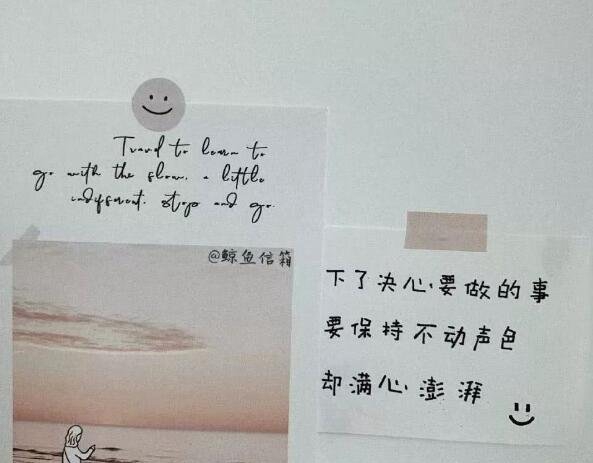 Travel to learn to
go with the slow, a little
indifferent, stop and go.
@鲸鱼信箱
下了决心要做的事
要保持不动声色
却满心澎湃